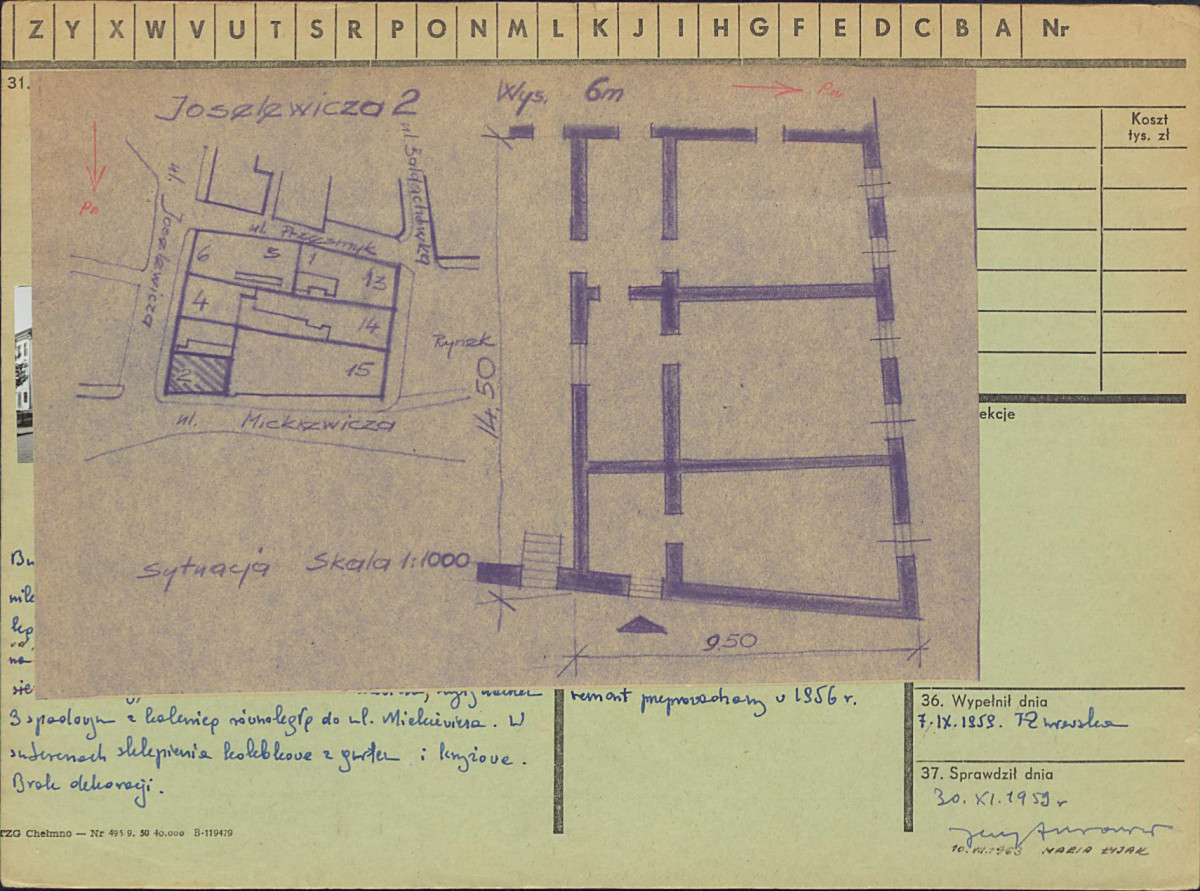 Z Y X W V U T S R P O N M L K J I H G F E D C B A Nr
31.
Joselewicza 2
Wys. 6m
Pn
Koszt
tys. zł
Pn
ul. Joselewicza
ul. Bałdachówka
ul. Przesmyk
6 5 1 13
4 14
2 15
Rynek
ul. Mickiewicza
14,50
ekcje
Sytuacja Skala 1:1000
9.50
Bu
na
sie
remont przeprowadzony w 1956 r.
3 spadowym z kalenicą równoległą do ul. Mickiewicza. W
suterenach sklepienia kolebkowe z gurtem i krzyżowe.
Brak dekoracji.
36. Wypełnił dnia
7.IX.1959.
37. Sprawdził dnia
30.XI.1959 r
10.VII.1963 MARIA ŁYJAK
TZG Chełmno — Nr 495 9. 50 40.000 B-119479